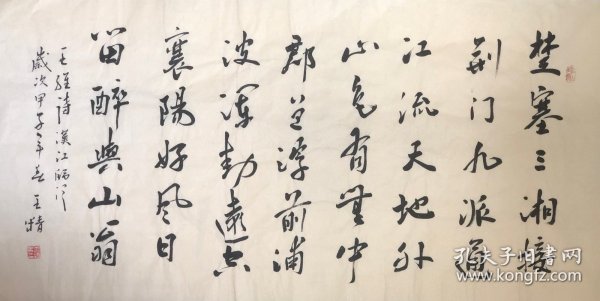 楚塞三湘接
荆门九派通
江流天地外
山色有無中
郡邑浮前浦
波澜動遠空
襄陽好风日
留醉與山翁
王維詩漢江临泛
歲次甲子年春 王
孔夫子旧书网
www.kongfz.com